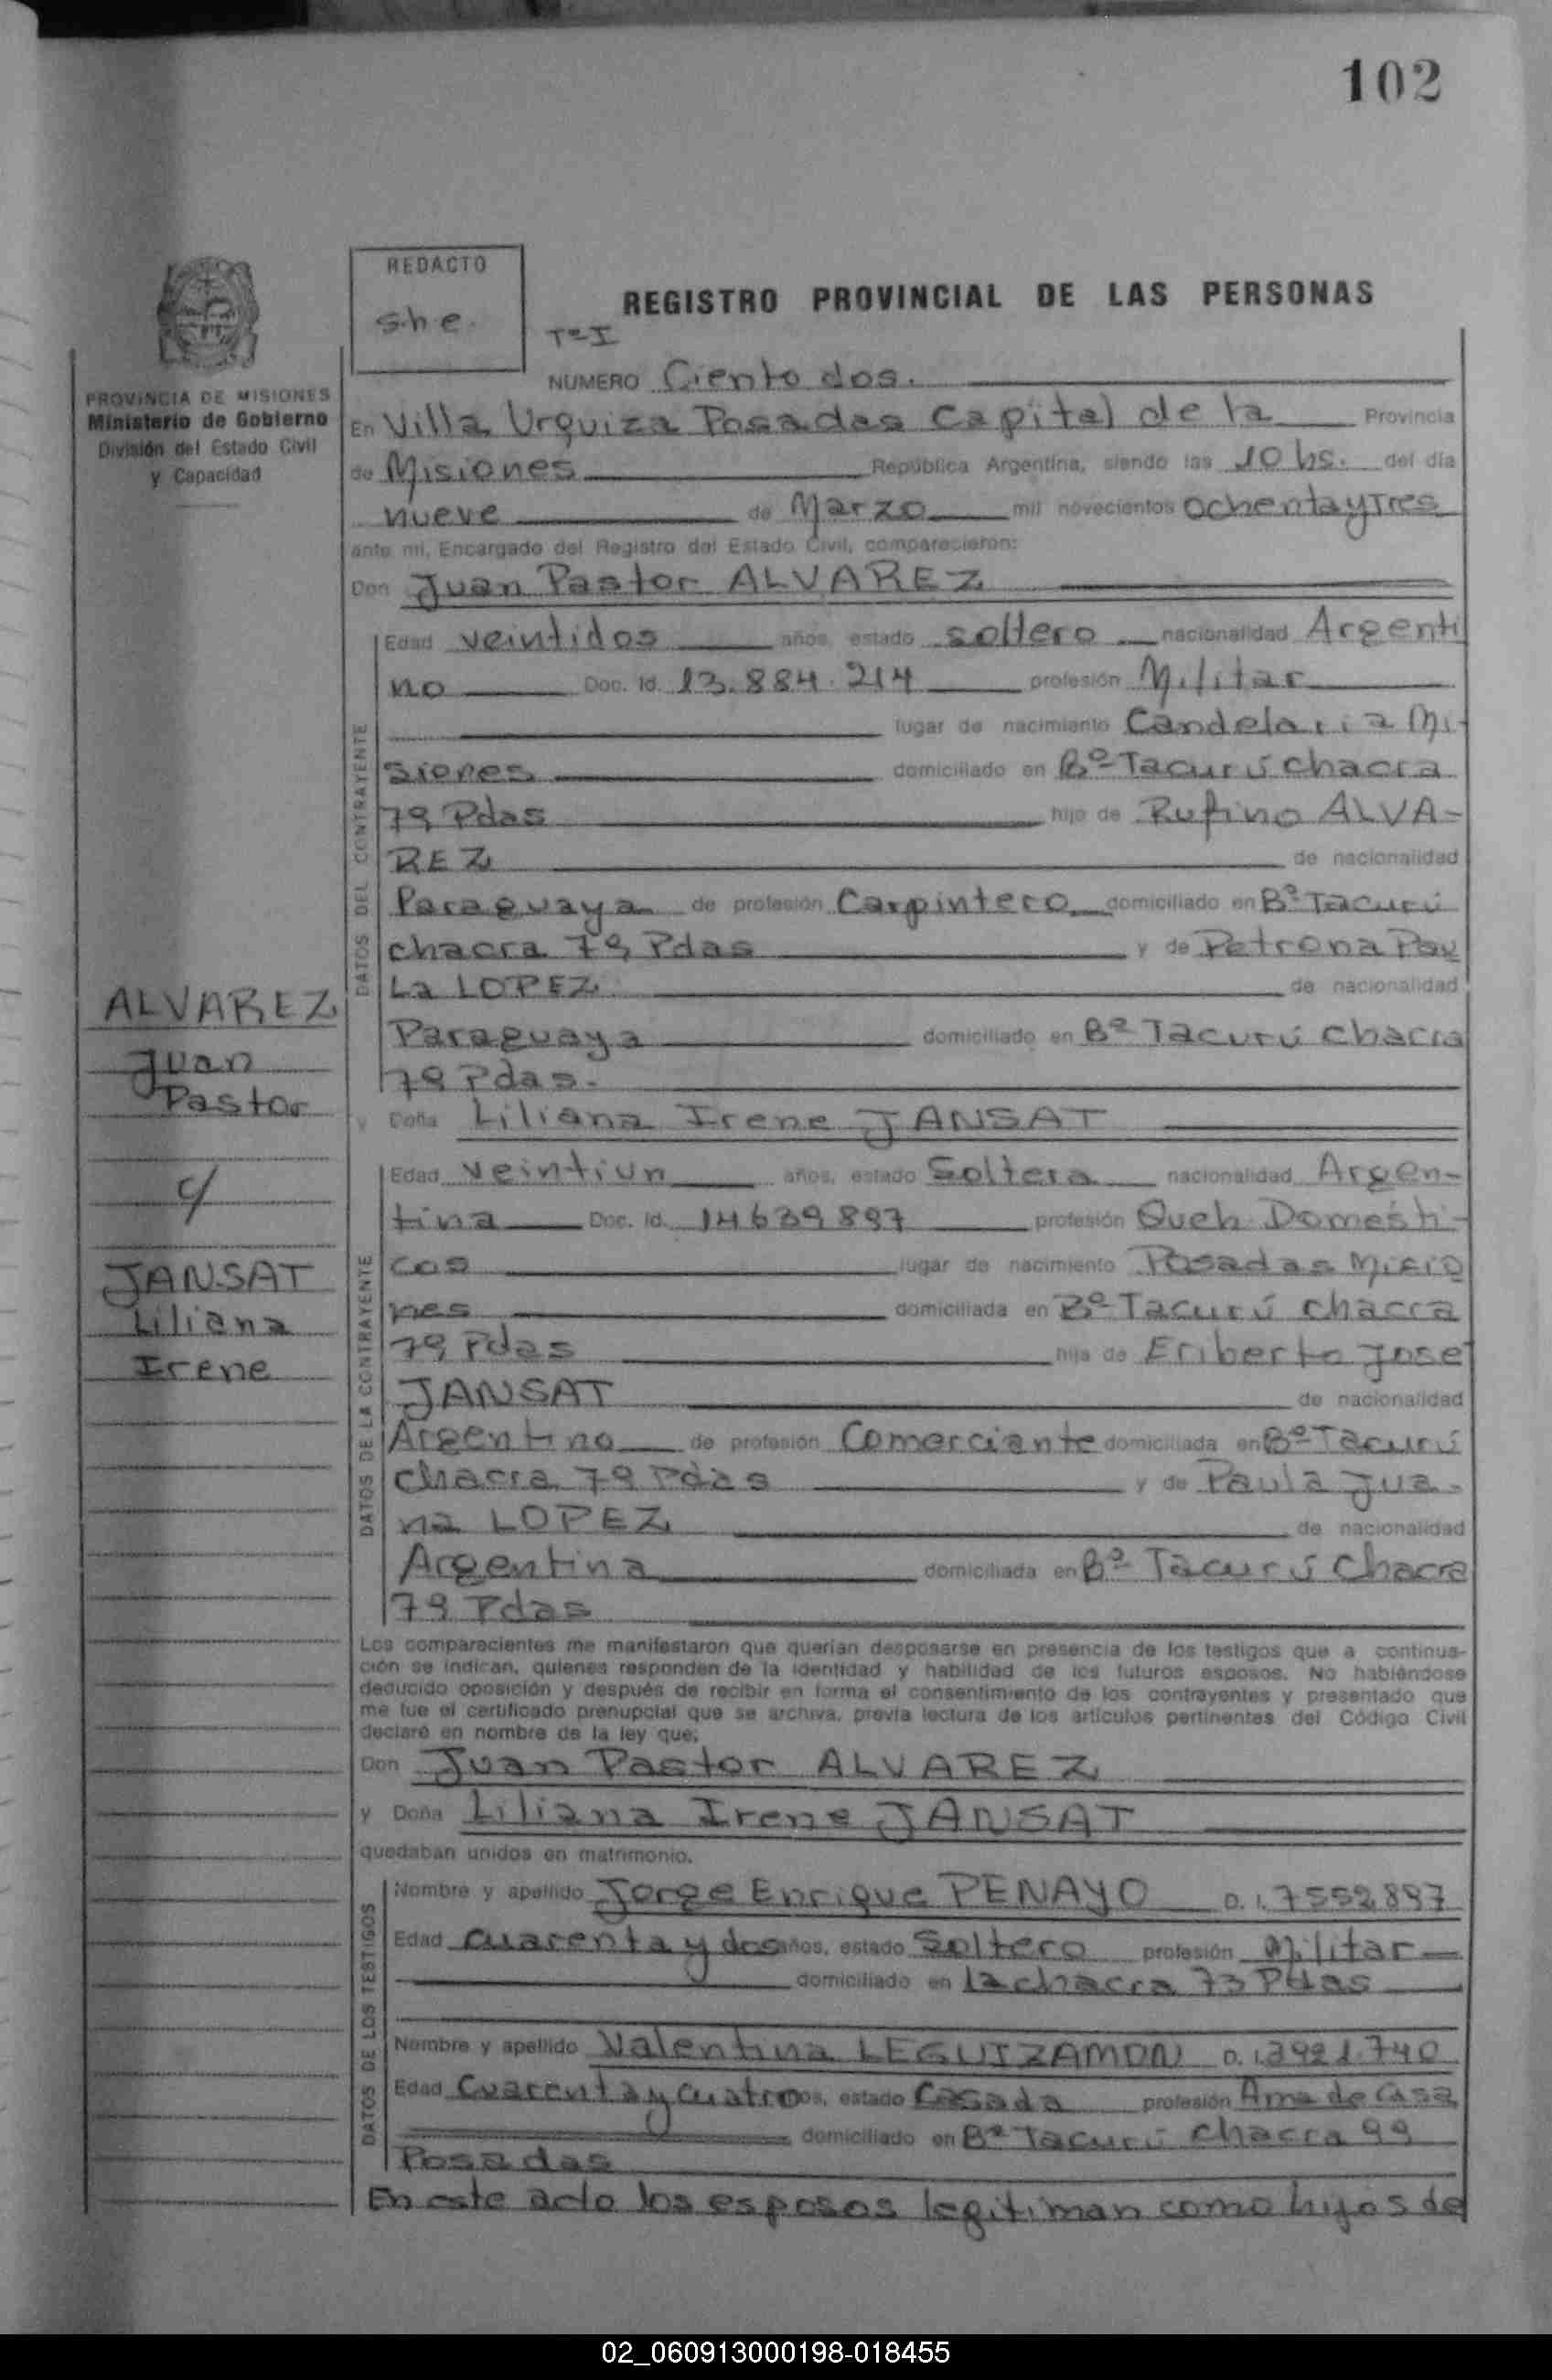 102
REDACTO
s.h.e.
REGISTRO PROVINCIAL DE LAS PERSONAS
Tº I
NUMERO Ciento dos.
PROVINCIA DE MISIONES
Ministerio de Gobierno
División del Estado Civil
y Capacidad
En Villa Urquiza Posadas Capital de la Provincia
de Misiones República Argentina, siendo las 10 hs. del día
nueve de Marzo mil novecientos ochentaytres
ante mi, Encargado del Registro del Estado Civil, comparecieron:
Don Juan Pastor ALVAREZ
DATOS DEL CONTRAYENTE
Edad veintidos años, estado soltero nacionalidad Argenti
no Doc. Id. 13.884.214 profesión Militar
lugar de nacimiento Candelaria Mi-
siones domiciliado en Bº Tacurú chacra
79 Pdas hijo de Rufino ALVA-
REZ de nacionalidad
Paraguaya de profesión Carpintero domiciliado en Bº Tacurú
chacra 79 Pdas y de Petrona Pau
La LOPEZ de nacionalidad
Paraguaya domiciliado en Bº Tacurú Chacra
79 Pdas.
ALVAREZ
Juan
Pastor
c/
JANSAT
Liliana
Irene
y Doña Liliana Irene JANSAT
DATOS DE LA CONTRAYENTE
Edad veintiun años, estado Soltera nacionalidad Argen-
tina Doc. Id. 14639897 profesión Queh. Domesti-
cos lugar de nacimiento Posadas Misio
nes domiciliada en Bº Tacurú chacra
79 Pdas hija de Eriberto Jose
JANSAT de nacionalidad
Argentino de profesión Comerciante domiciliada en Bº Tacurú
chacra 79 Pdas y de Paula Jua-
na LOPEZ de nacionalidad
Argentina domiciliada en Bº Tacurú Chacra
79 Pdas
Los comparecientes me manifestaron que querían desposarse en presencia de los testigos que a continua-
ción se indican, quienes responden de la identidad y habilidad de los futuros esposos. No habiéndose
deducido oposición y después de recibir en forma el consentimiento de los contrayentes y presentado que
me fue el certificado prenupcial que se archiva, previa lectura de los artículos pertinentes del Código Civil
declaré en nombre de la ley que:
Don Juan Pastor ALVAREZ
y Doña Liliana Irene JANSAT
quedaban unidos en matrimonio.
DATOS DE LOS TESTIGOS
Nombre y apellido Jorge Enrique PENAYO D. I. 7552897
Edad cuarenta y dos años, estado Soltero profesión Militar
domiciliado en la chacra 73 Pdas
Nombre y apellido Valentina LEGUIZAMON D. I. 3921.740
Edad Cuarentaycuatro os, estado Casada profesión Ama de Casa
domiciliado en Bº Tacurú chacra 99
Posadas
En este acto los esposos legitiman como hijos del
02_060913000198-018455